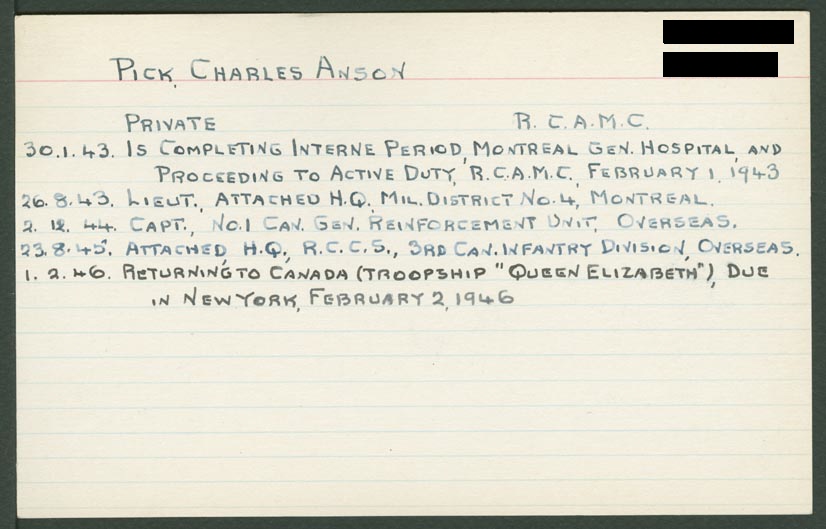 PICK, CHARLES ANSON
PRIVATE R.C.A.M.C.
30.1.43. IS COMPLETING INTERNE PERIOD, MONTREAL GEN. HOSPITAL, AND
PROCEEDING TO ACTIVE DUTY, R.C.A.M.C., FEBRUARY 1, 1943
26.8.43. LIEUT., ATTACHED H.Q., MIL. DISTRICT NO. 4, MONTREAL.
2.12.44. CAPT., NO. 1 CAN. GEN. REINFORCEMENT UNIT, OVERSEAS.
23.8.45. ATTACHED, H.Q., R.C.C.S., 3RD CAN. INFANTRY DIVISION, OVERSEAS.
1.2.46. RETURNING TO CANADA (TROOPSHIP "QUEEN ELIZABETH"), DUE
IN NEW YORK, FEBRUARY 2, 1946